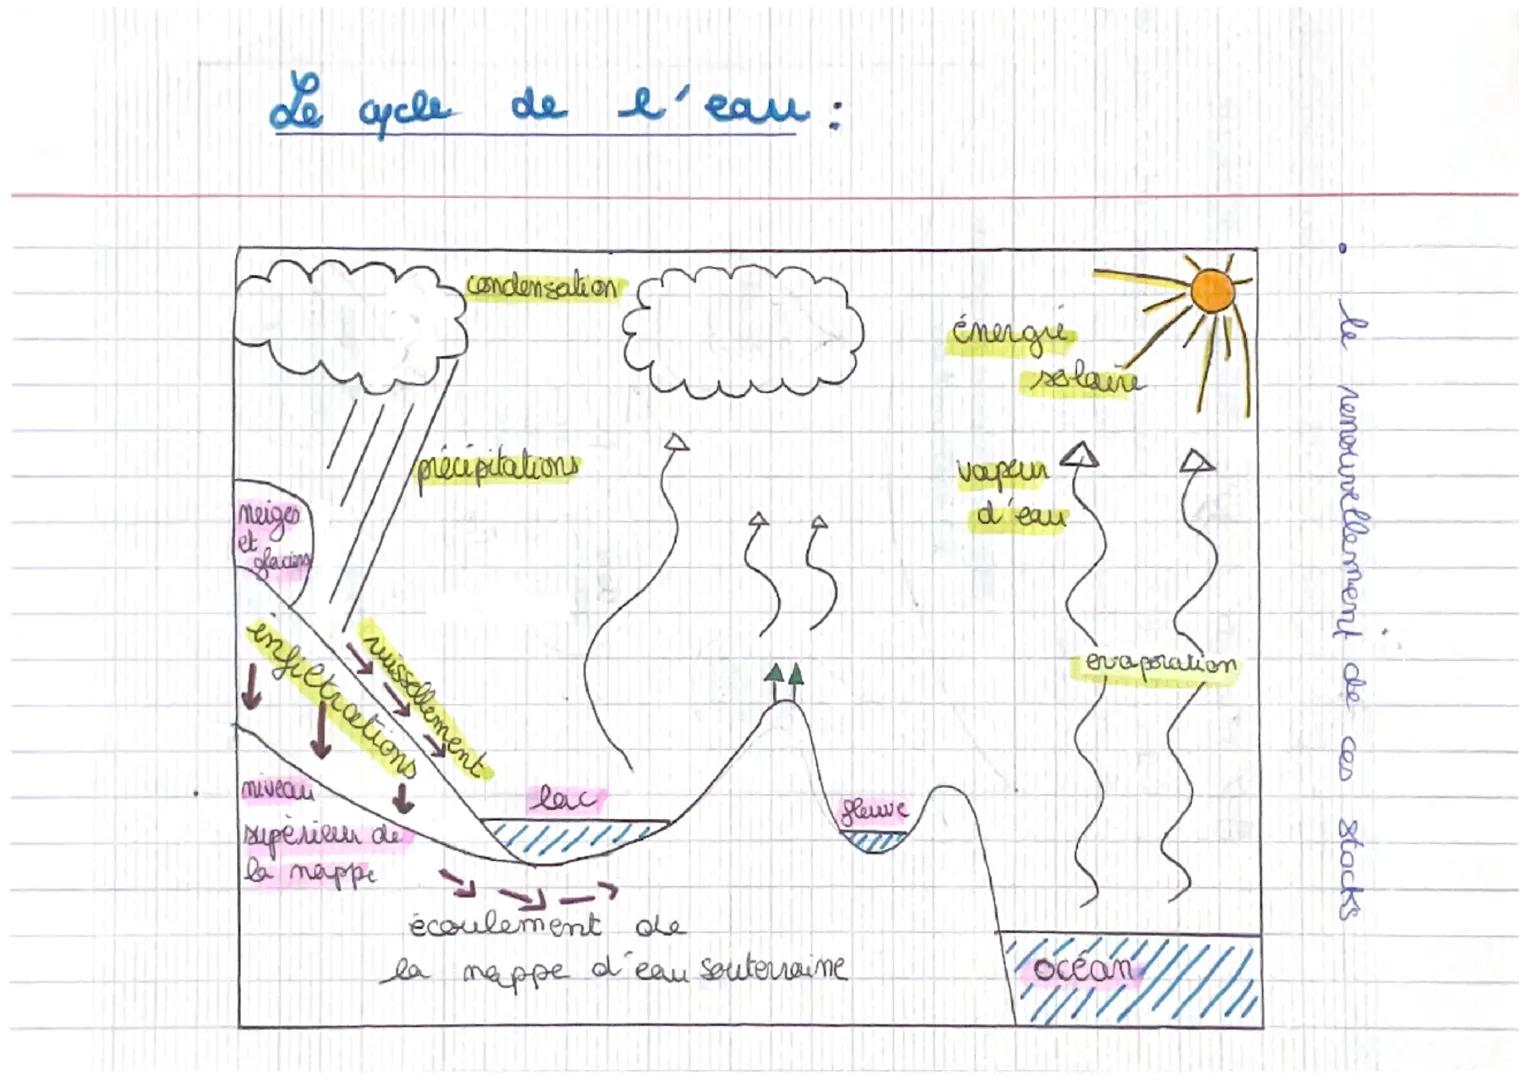 Le cycle de l'eau :
condensation
énergie
solaire
précipitations
vapeur
d'eau
neiges
et
glaciers
infiltrations
ruissellement
evaporation
niveau
supérieur de
la nappe
lac
fleuve
écoulement de
la nappe d'eau souterraine
océan
• le renouvellement de ces stocks